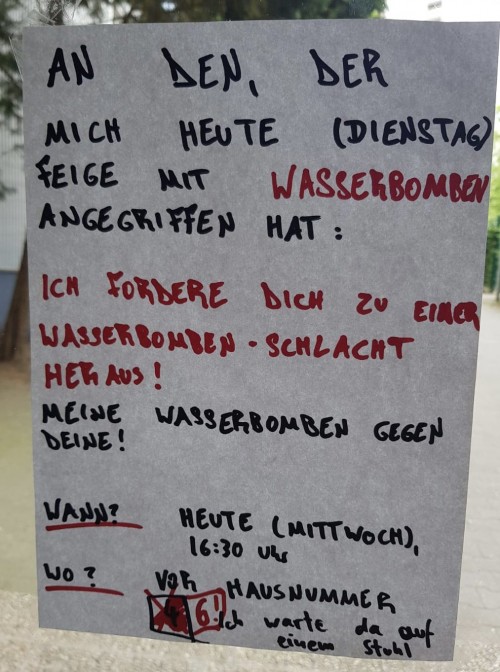 AN DEN, DER
MICH HEUTE (DIENSTAG)
FEIGE MIT WASSERBOMBEN
ANGEGRIFFEN HAT:
ICH FORDERE DICH ZU EINER
WASSERBOMBEN-SCHLACHT
HERAUS!
MEINE WASSERBOMBEN GEGEN
DEINE!
WANN? HEUTE (MITTWOCH),
16:30 Uhr
WO? VOR HAUSNUMMER
6! Ich warte da auf
einem Stuhl